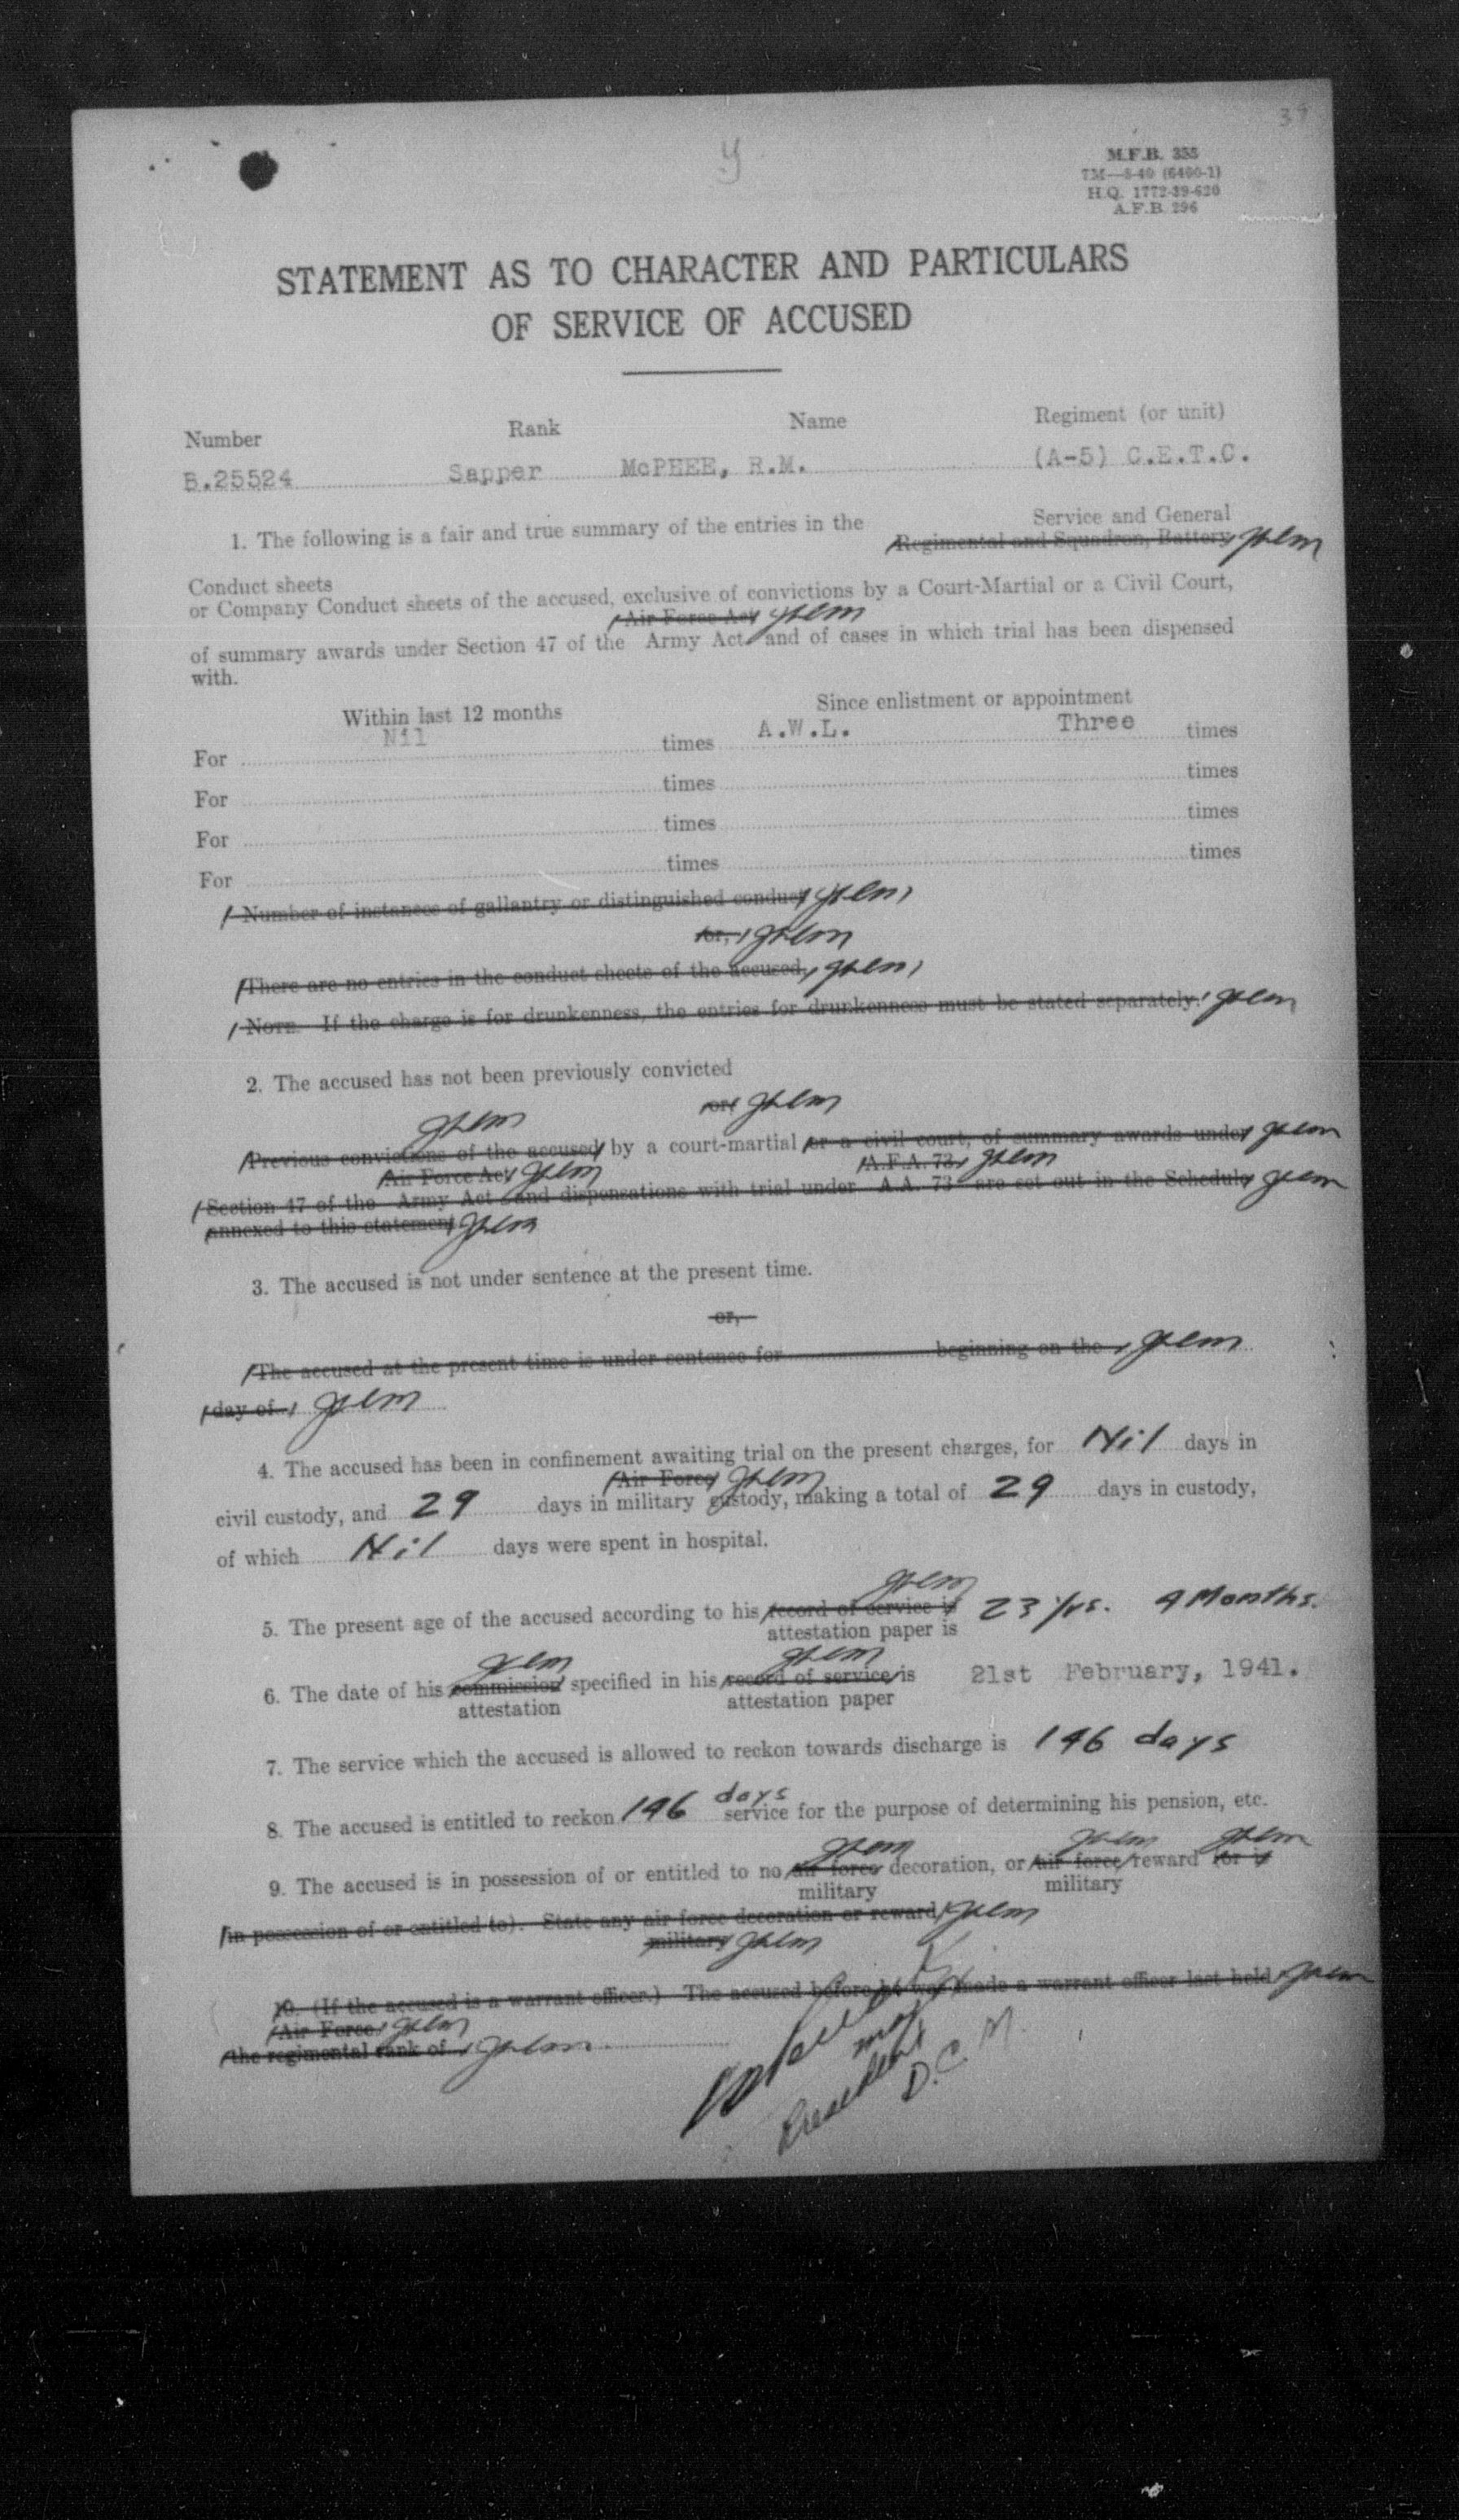 37
y
M.F.B. 355
7M—8-40 (6400-1)
H.Q. 1772-39-620
A.F.B. 296
STATEMENT AS TO CHARACTER AND PARTICULARS
OF SERVICE OF ACCUSED
Number Rank Name Regiment (or unit)
B.25524 Sapper McPHEE, R.M. (A-5) C.E.T.C.
Service and General
1. The following is a fair and true summary of the entries in the Regimental and Squadron, Battery
Conduct sheets
or Company Conduct sheets of the accused, exclusive of convictions by a Court-Martial or a Civil Court,
Air Force Act
of summary awards under Section 47 of the Army Act and of cases in which trial has been dispensed
with.
Within last 12 months Since enlistment or appointment
For Nil times A.W.L. Three times
For times times
For times times
For times times
Number of instances of gallantry or distinguished conduct
or,
There are no entries in the conduct sheets of the accused.
NOTE. If the charge is for drunkenness, the entries for drunkenness must be stated separately.
2. The accused has not been previously convicted
or
Previous convictions of the accused by a court-martial or a civil court, of summary awards under
Air Force Act A.F.A. 73
Section 47 of the Army Act and dispensations with trial under A.A. 73 are set out in the Schedule
annexed to this statement
3. The accused is not under sentence at the present time.
or,
The accused at the present time is under sentence for beginning on the
day of
4. The accused has been in confinement awaiting trial on the present charges, for Nil days in
Air Force
civil custody, and 29 days in military custody, making a total of 29 days in custody,
of which Nil days were spent in hospital.
5. The present age of the accused according to his record of service is 23 yrs. 9 Months.
attestation paper is
6. The date of his commission specified in his record of service is 21st February, 1941.
attestation attestation paper
7. The service which the accused is allowed to reckon towards discharge is 146 days
days
8. The accused is entitled to reckon 146 service for the purpose of determining his pension, etc.
9. The accused is in possession of or entitled to no air force decoration, or air force reward (or is
military military
in possession of or entitled to). State any air force decoration or reward
military
10. (If the accused is a warrant officer.) The accused before he was made a warrant officer last held
Air Force
the regimental rank of
Maj
President
D.C.M.